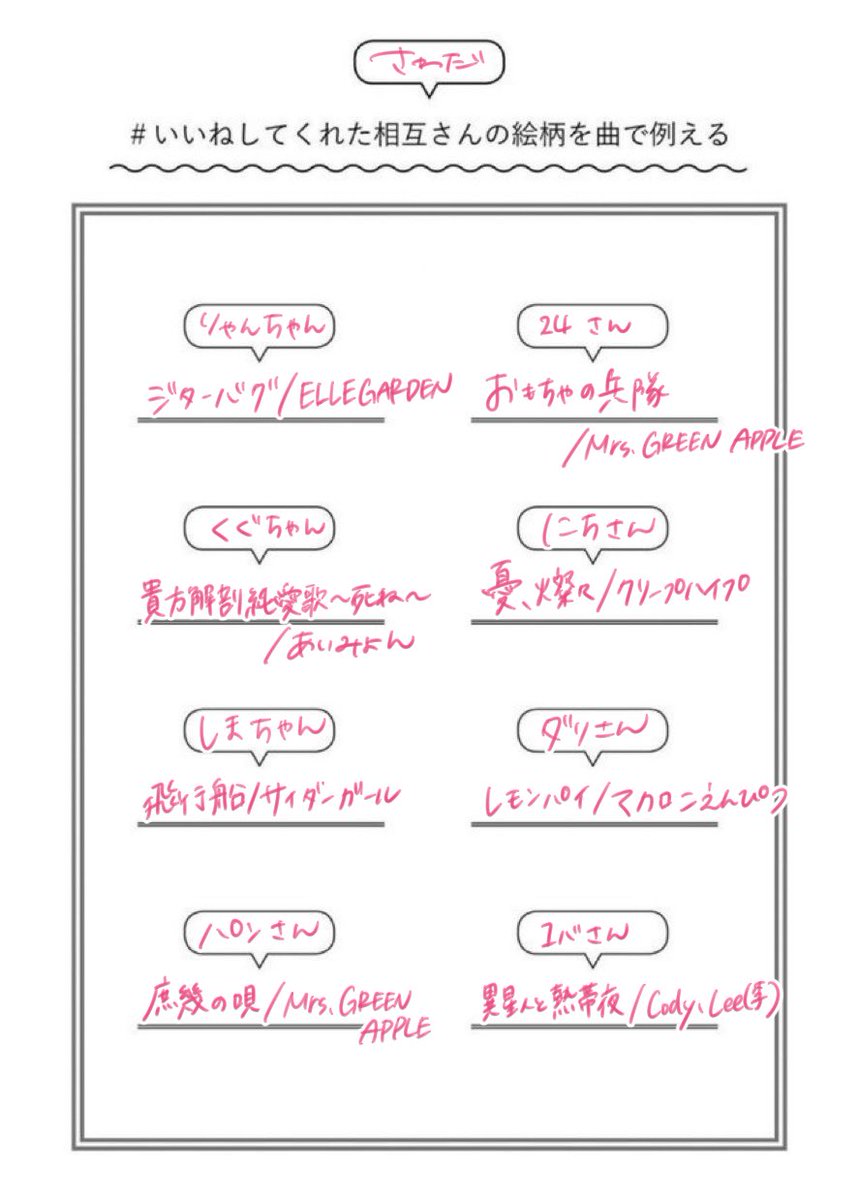 さわだ
#いいねしてくれた相互さんの絵柄を曲で例える
りゃんちゃん
ジターバグ/ELLEGARDEN
24 さん
おもちゃの兵隊
/Mrs. GREEN APPLE
くぐちゃん
貴方解剖純愛歌〜死ね〜
/あいみょん
にこちさん
憂、燦々/クリープハイプ
しまちゃん
飛行船/サイダーガール
ダリさん
レモンパイ/マカロニえんぴつ
ハロンさん
庶幾の唄/Mrs. GREEN
APPLE
ユバさん
異星人と熱帯夜/Cody・Lee(李)